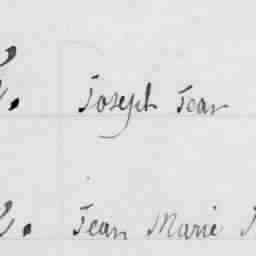 Joseph Jean
Jean Marie